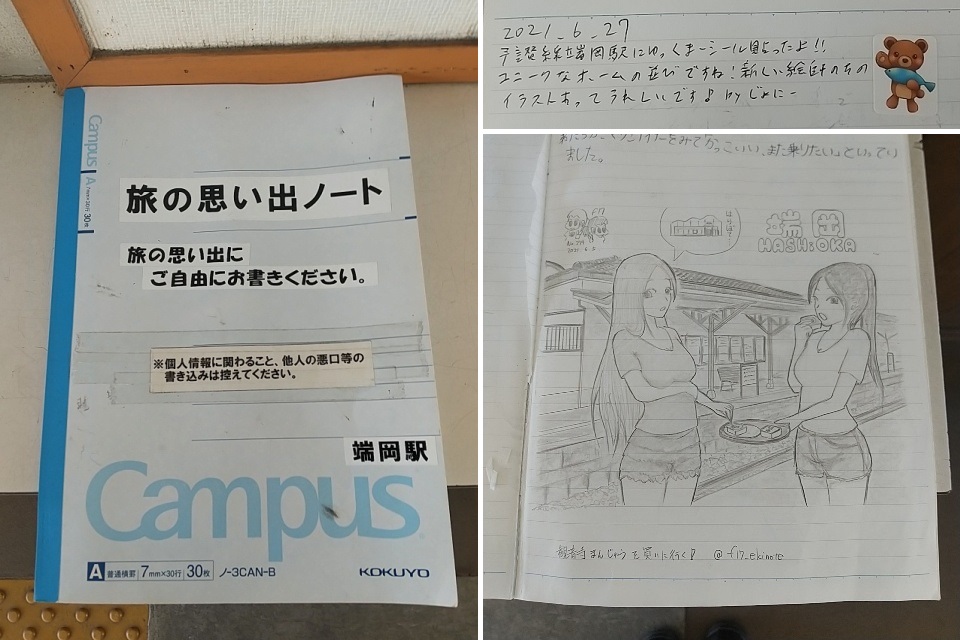 Campus
A 7mm×30行 30枚
旅の思い出ノート
旅の思い出に
ご自由にお書きください。
※個人情報に関わること、他人の悪口等の
書き込みは控えてください。
端岡駅
Campus
A 普通横罫 7mm×30行 30枚 ノ-3CAN-B
KOKUYO
2021_6_27
予讃線端岡駅にゆっくまーシール貼ったよ!!
ユニークなホームの並びですね!新しい絵師の方の
イラストあってうれしいです♪ by じょにー
をみてかっこいい、また乗りたい。といってい
ました。
端岡
HASHIOKA
まんじゅうを買いに行く!
@f17_ekinote